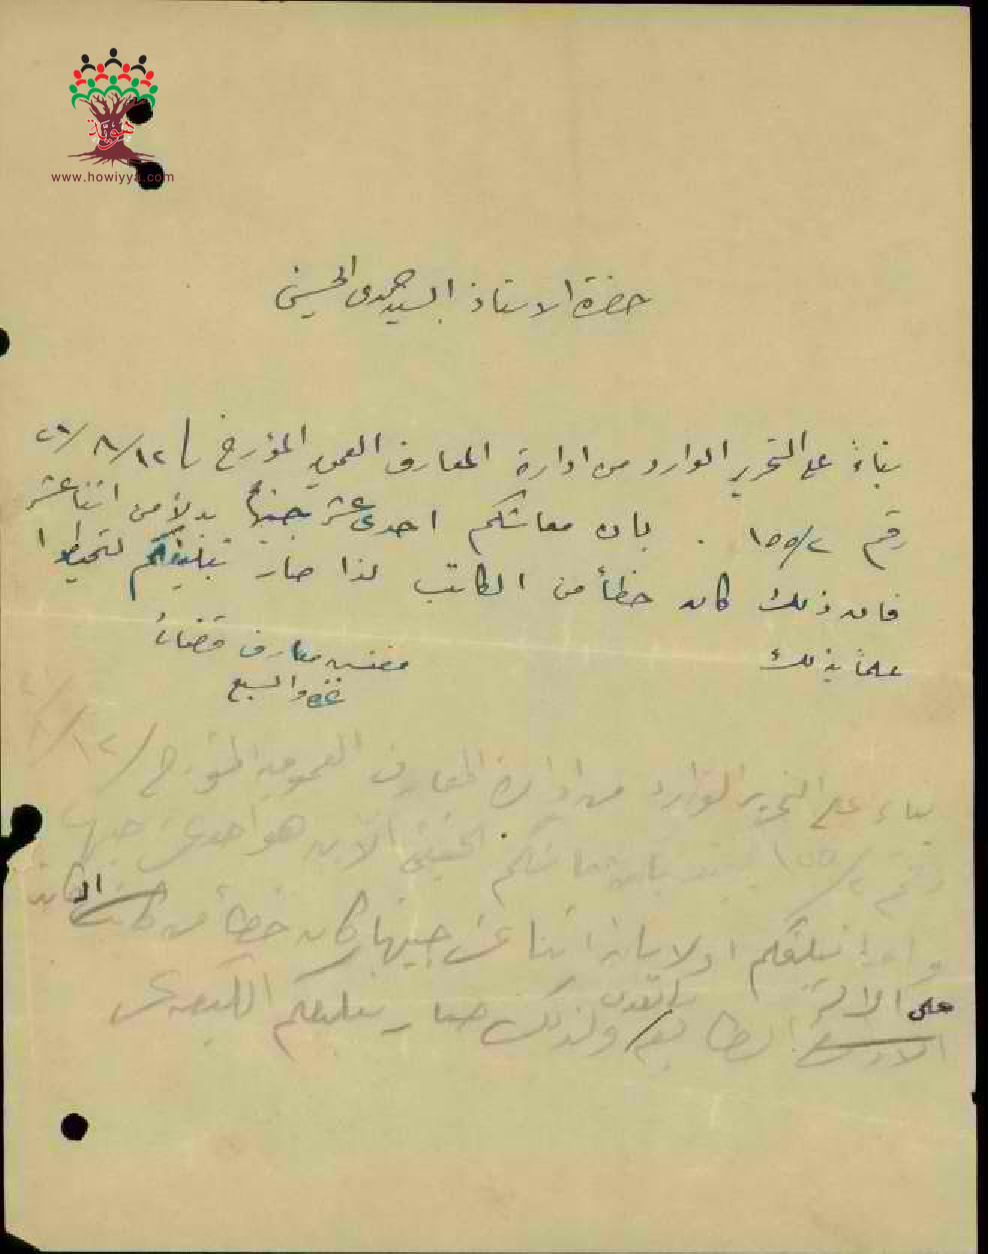 هوية
www.howiyya.com
حضرة الاستاذ السيد حمدي الحسيني
بناءً على التحرير الوارد من ادارة المعارف العمومية المؤرخ في ١٢/٨/٢٦
رقم ١٥٥/٢ . بان معاشكم احدى عشر جنيهاً بدلاً من اثنا عشر
فان ذلك كان خطأ من الكاتب لذا صار تبليغكم لتحيطوا
علماً بذلك
مفتش معارف قضائي
غزه والسبع
بناء على التحرير الوارد من ادارة المعارف العمومية المؤرخ ١٢/٨
رقم ١٥٥/٢ بان معاشكم الحقيقي الآن هو احد عشر جنيها
تبليغكم اولا بانه اثنا عشر جنيها كان خطأ من كاتب
على الآلة
الطابعه ولذلك صار تبليغكم